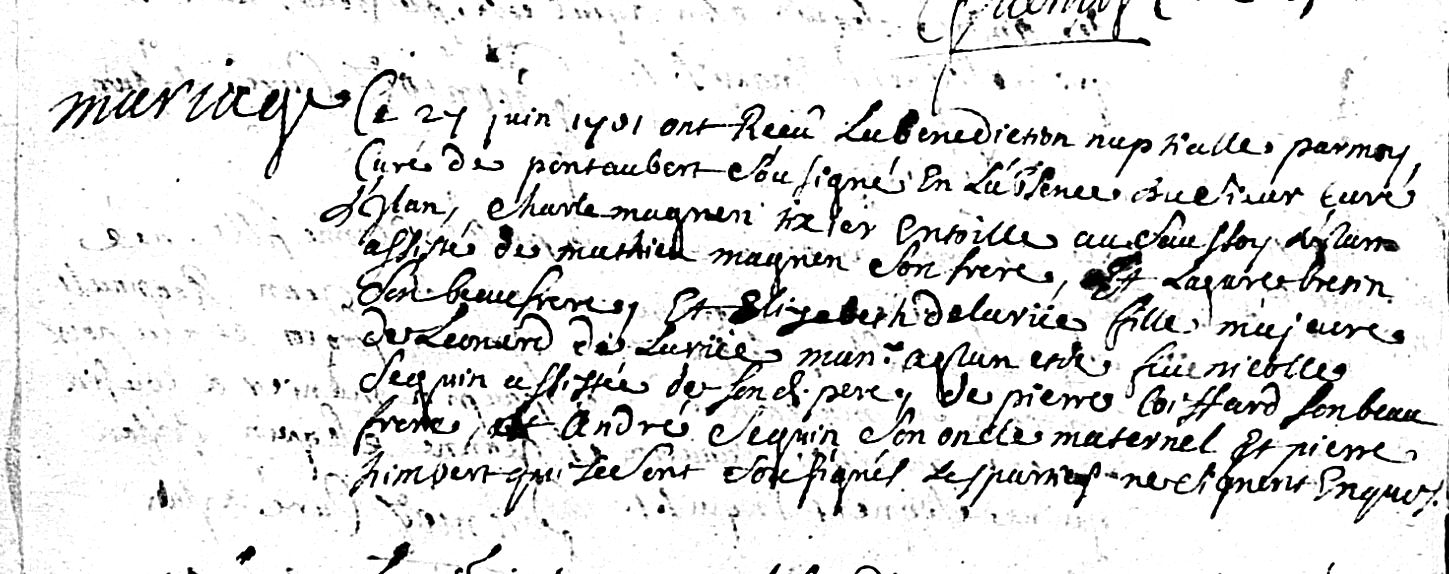 mariage
Ce 27 juin 1701 ont Reçeu La benediction nuptialle par moy,
Curé de pontaubert sousigné En L'absence du sieur curé
d'Island, Charle magnen tixier Entoille au saussoy d'Islan
assisté de mathieu magnen son frere, Et Lazare bresin
son beaufrere, Et Elizabeth delariée fille majeure
de Leonard de Lariée man.r a Islan et de füe nicolle
Seguin assistée de son d. pere, de pierre Coiffard son beau
frere, et André Seguin son oncle maternel Et pierre
himbert qui se sont sousignés Les parties ne signent Enquis.